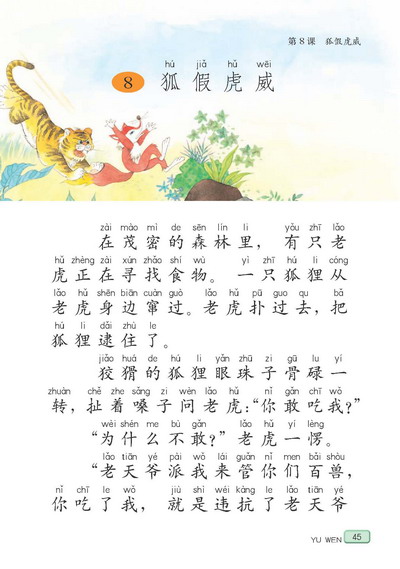 第8课 狐假虎威
hú jiǎ hǔ wēi
8 狐假虎威
zài mào mì de sēn lín li yǒu zhī lǎo
在茂密的森林里，有只老
hǔ zhèng zài xún zhǎo shí wù yì zhī hú li cóng
虎正在寻找食物。一只狐狸从
lǎo hǔ shēn biān cuàn guò lǎo hǔ pū guo qu bǎ
老虎身边窜过。老虎扑过去，把
hú li dǎi zhù le
狐狸逮住了。
jiǎo huá de hú li yǎn zhū zi gū lu yí
狡猾的狐狸眼珠子骨碌一
zhuàn chě zhe sǎng zi wèn lǎo hǔ nǐ gǎn chī wǒ
转，扯着嗓子问老虎：“你敢吃我？”
wèi shén me bù gǎn lǎo hǔ yí lèng
“为什么不敢？”老虎一愣。
lǎo tiān yé pài wǒ lái guǎn nǐ men bǎi shòu
“老天爷派我来管你们百兽，
nǐ chī le wǒ jiù shì wéi kàng le lǎo tiān yé
你吃了我，就是违抗了老天爷
YU WEN 45